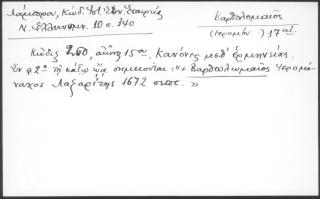 Λάμπρου, Κώδ. Ἱστ. Ἐθν. Ἑταιρείας
Ν. Ἑλληνομν. 10 σ. 340
Βαρθολομαῖος
(ἱερομόν.) 17 αἰ.
Κῶδιξ 250, αἰῶνος 15ου. Κανόνες μεθ' ἑρμηνείας.
Ἐν φ 2α τῇ κάτω ᾤᾳ σημειοῦται: "+ Βαρθωλωμαῖος ἱερομό-
ναχος Λαζαρίτης 1672